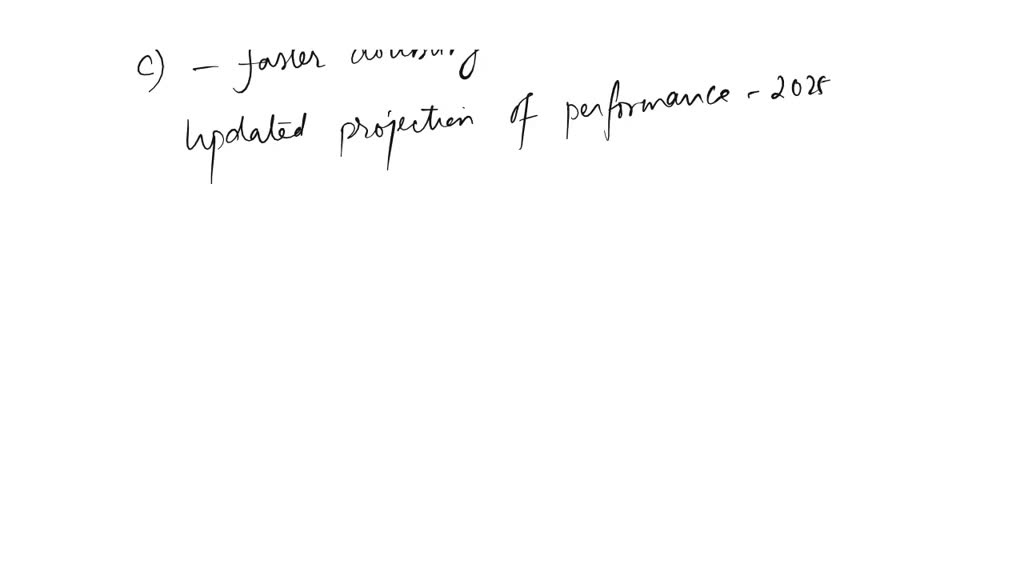 c) - faster
Updated projection of performance - 2025